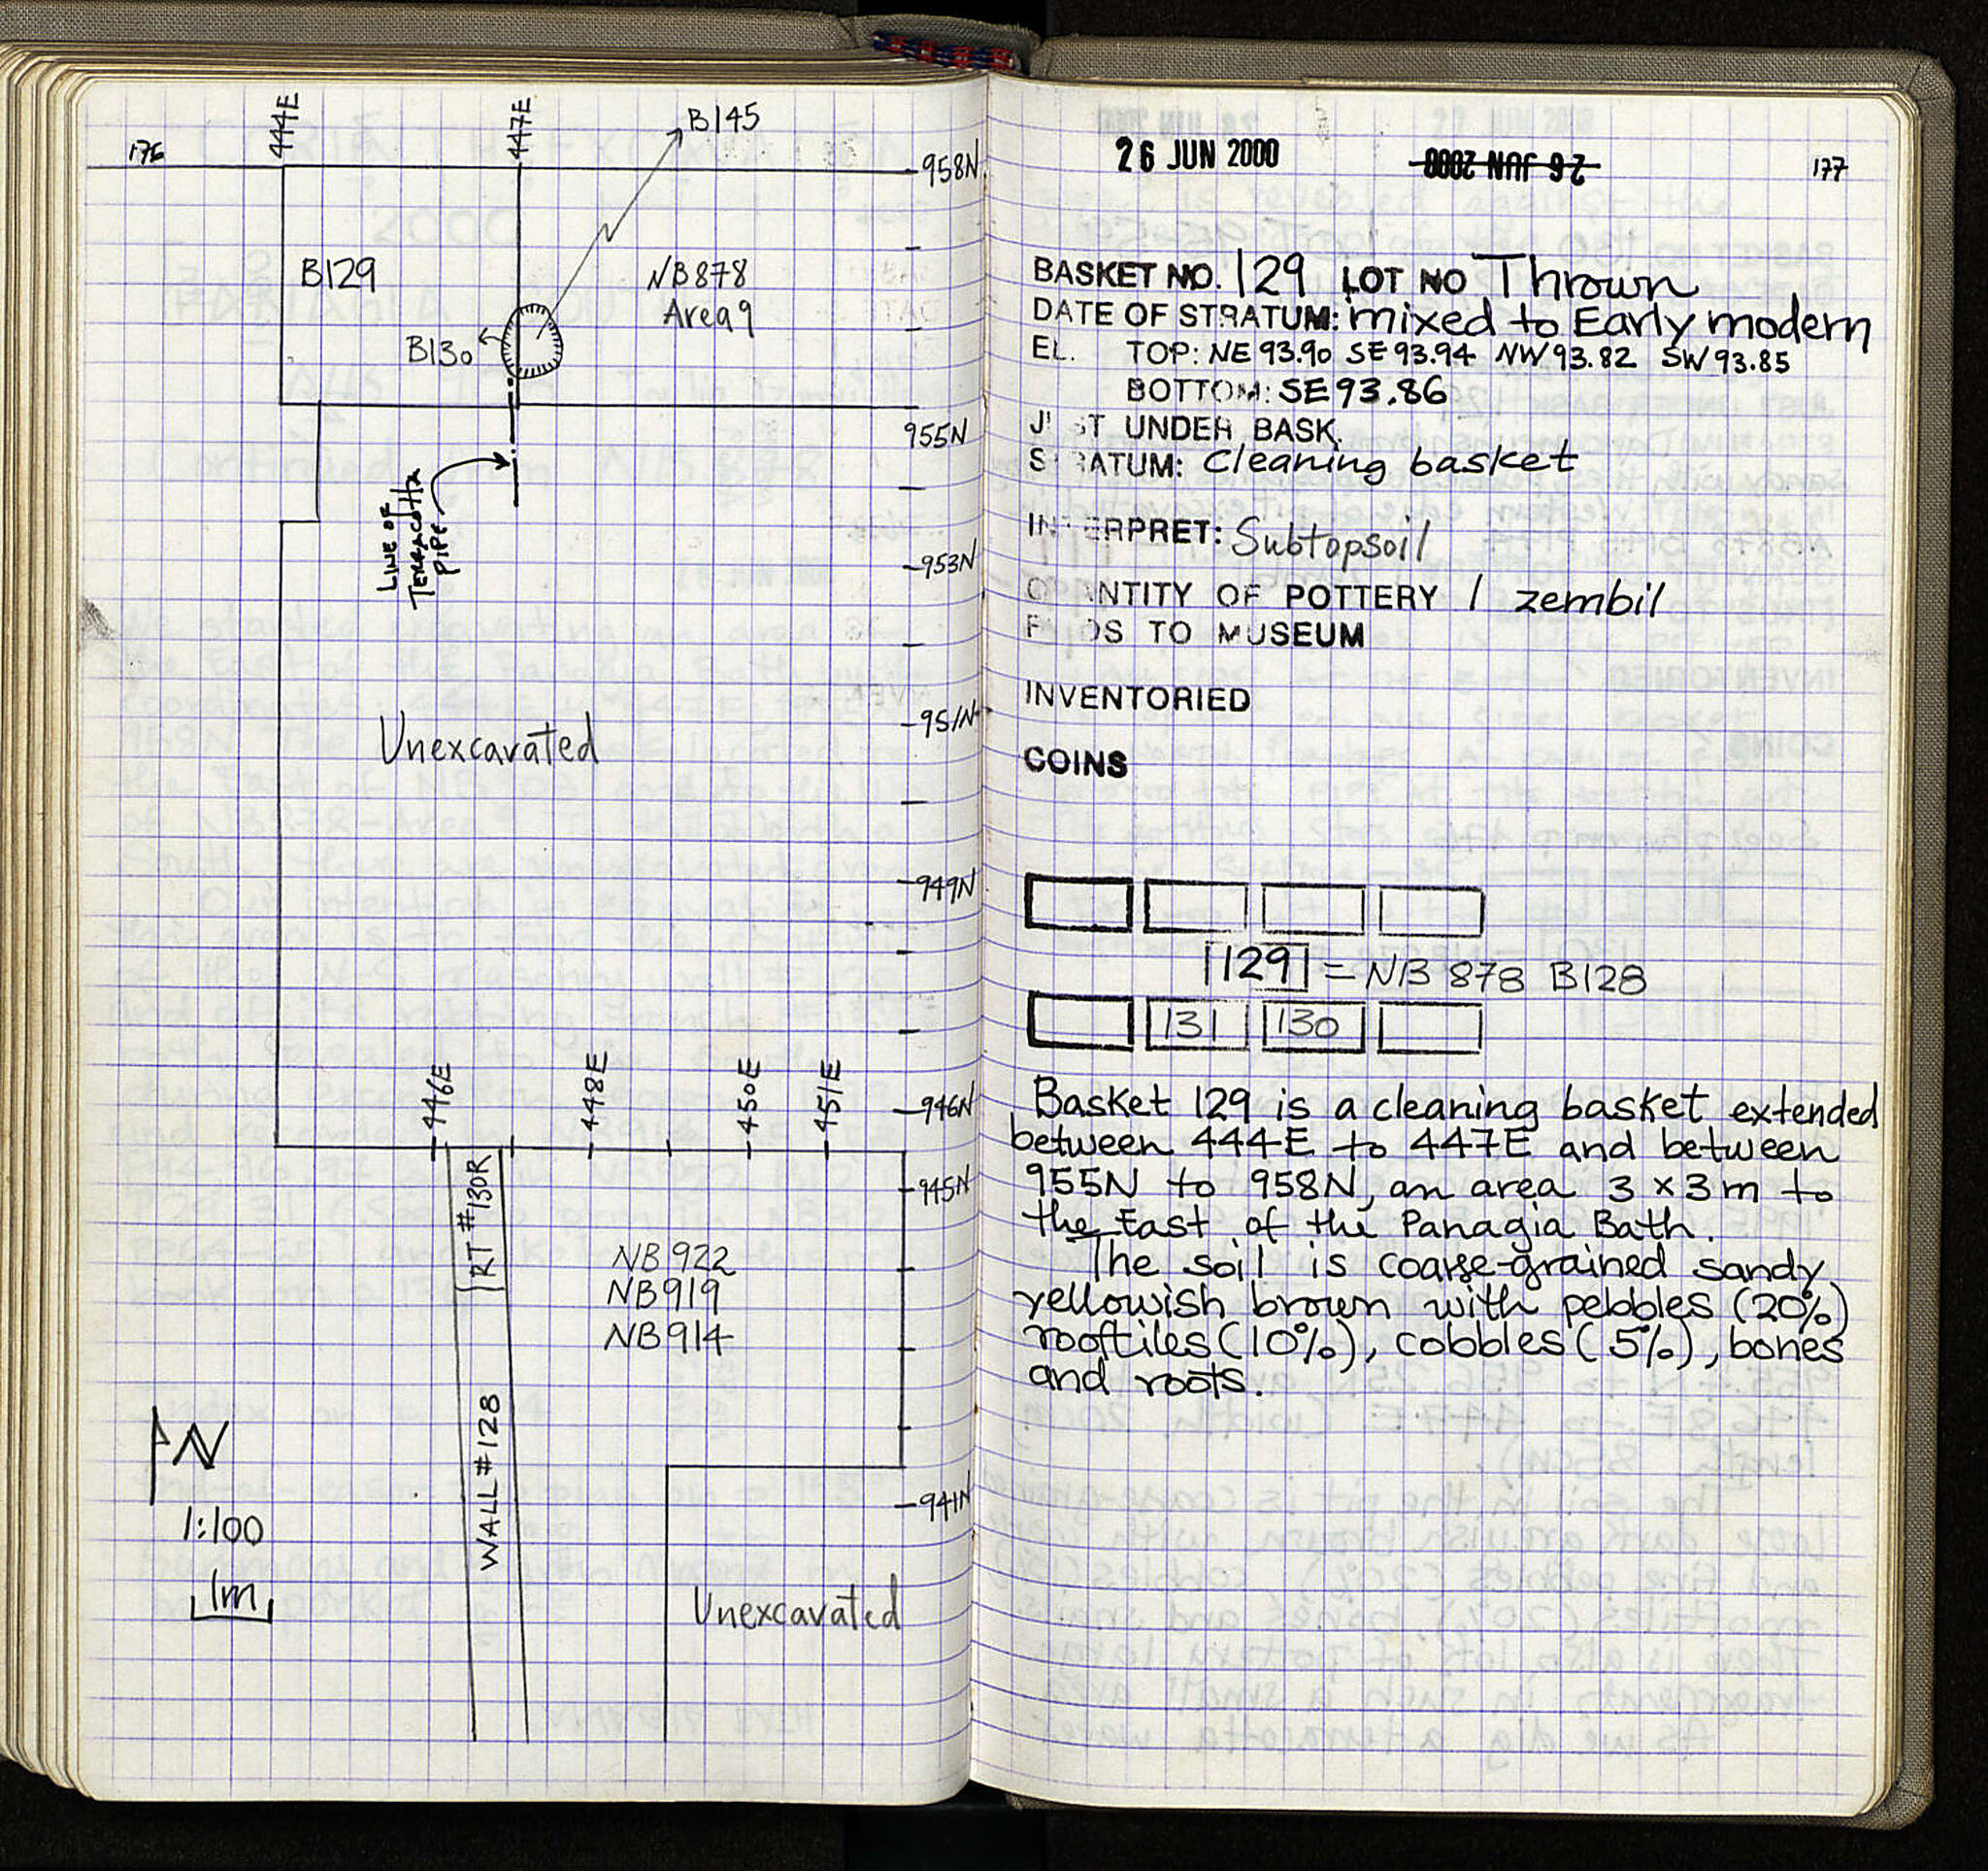 176
444E
447E
B145
958N
B129
NB878
Area 9
B130
955N
LINE OF
TERRACOTTA
PIPE
953N
951N
Unexcavated
949N
446E
448E
450E
451E
946N
RT #130R
945N
NB922
NB919
NB914
WALL #128
N
1:100
1m
941N
Unexcavated
26 JUN 2000
26 JUN 2000
177
BASKET NO. 129 LOT NO Thrown
DATE OF STRATUM: mixed to Early modern
EL. TOP: NE 93.90 SE 93.94 NW 93.82 SW 93.85
BOTTOM: SE 93.86
JUST UNDER BASK.
STRATUM: Cleaning basket
INTERPRET: Subtopsoil
QUANTITY OF POTTERY 1 zembil
FINDS TO MUSEUM
INVENTORIED
COINS
129 = NB 878 B128
131 130
Basket 129 is a cleaning basket extended
between 444E to 447E and between
955N to 958N, an area 3 x 3 m to
the East of the Panagia Bath.
The soil is coarse-grained sandy
yellowish brown with pebbles (20%)
rooftiles (10%), cobbles (5%), bones
and roots.